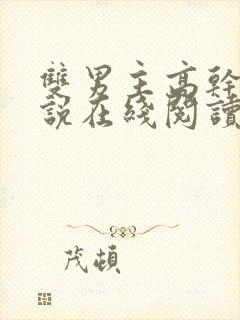 雙男主高幹
說在綫閱讀
茂頓